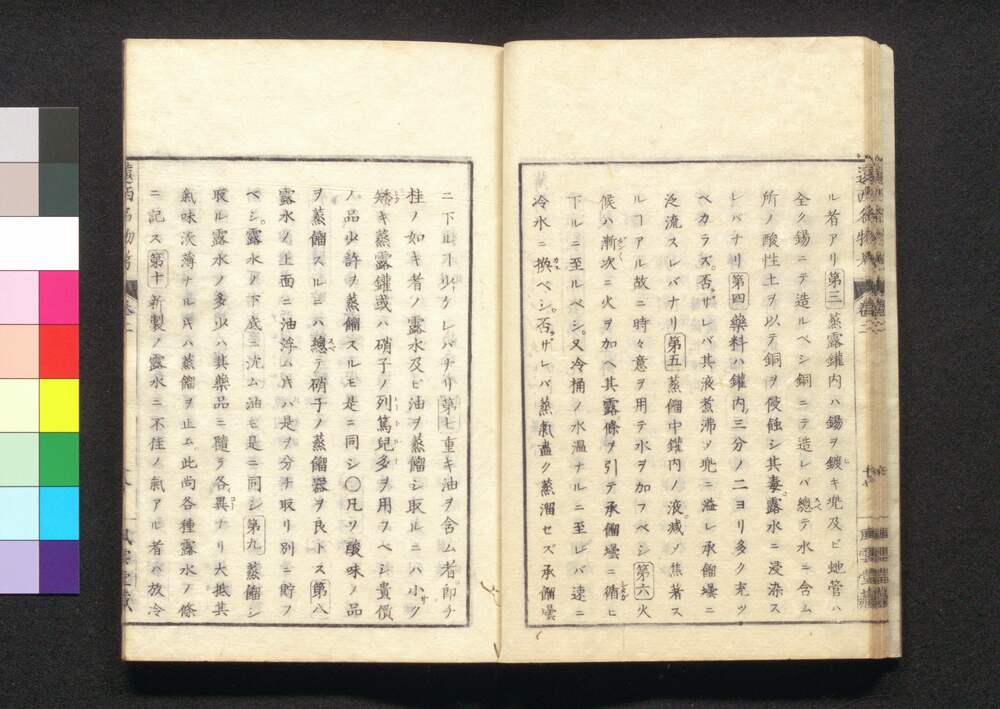 ル者アリ第三蒸露鑵内ハ錫ヲ鍍キ兜及ビ虵管ハ
全ク錫ニテ造ルベシ銅ニテ造レバ總テ水ニ含ム
所ノ酸性土ヲ以テ銅ヲ侵蝕シ其毒露水ニ浸染ス
レバナリ第四藥料ハ鑵内三分ノ二ヨリ多ク充ツ
ベカラズ否ザレバ其液煮沸ソ兜ニ溢レ承餾壜ニ
泛流スレバナリ第五蒸餾中鑵内ノ液减ソ焦著ス
ルヿアル故ニ時々意ヲ用テ水ヲ加フベシ第六火
候ハ漸次ニ火ヲ加ヘ其露條ヲ引テ承餾壜ニ循ヒ
下ルニ至ルベシ又冷桶ノ水温ナルニ至レバ速ニ
冷水ニ換ベシ否ザレバ蒸氣盡ク蒸溜セズ承餾壜
遠西名物考 卷二
ニ下ルヿ少ケレバナリ第七重キ油ヲ含ム者即チ
桂ノ如キ者ノ露水及ビ油ヲ蒸餾シ取ルニハ小ク
矮キ蒸露鑵或ハ硝子ノ列篤兒多ヲ用フベシ貴價
ノ品少許ヲ蒸餾スルモ是ニ同シ〇凡ソ酸味ノ品
ヲ蒸餾スルニハ總テ硝子ノ蒸餾器ヲ良トス第八
露水ノ上面ニ油浮ム ハ是ヲ分チ取リ別ニ貯フ
ベシ露水ノ下底ニ沈ム油モ是ニ同シ第九蒸餾シ
取ル露水ノ多少ハ其藥品ニ隨テ各異ナリ大抵其
氣味淡薄ナル ハ蒸餾ヲ止ム此尚各種露水ノ條
ニ記ス第十新製ノ露水ニ不佳ノ氣アル者ハ放冷